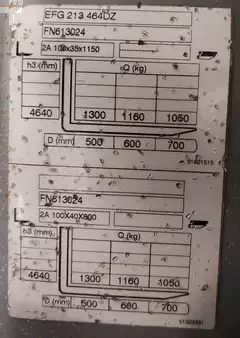 EFG 213 464DZ
FN613024
2A 100x35x1150
h3 (mm) Q (kg)
4640 1300 1160 1050
D (mm) 500 600 700
51021515
FN613024
2A 100X40X800
h3 (mm) Q (kg)
4640 1300 1160 1050
D (mm) 500 600 700